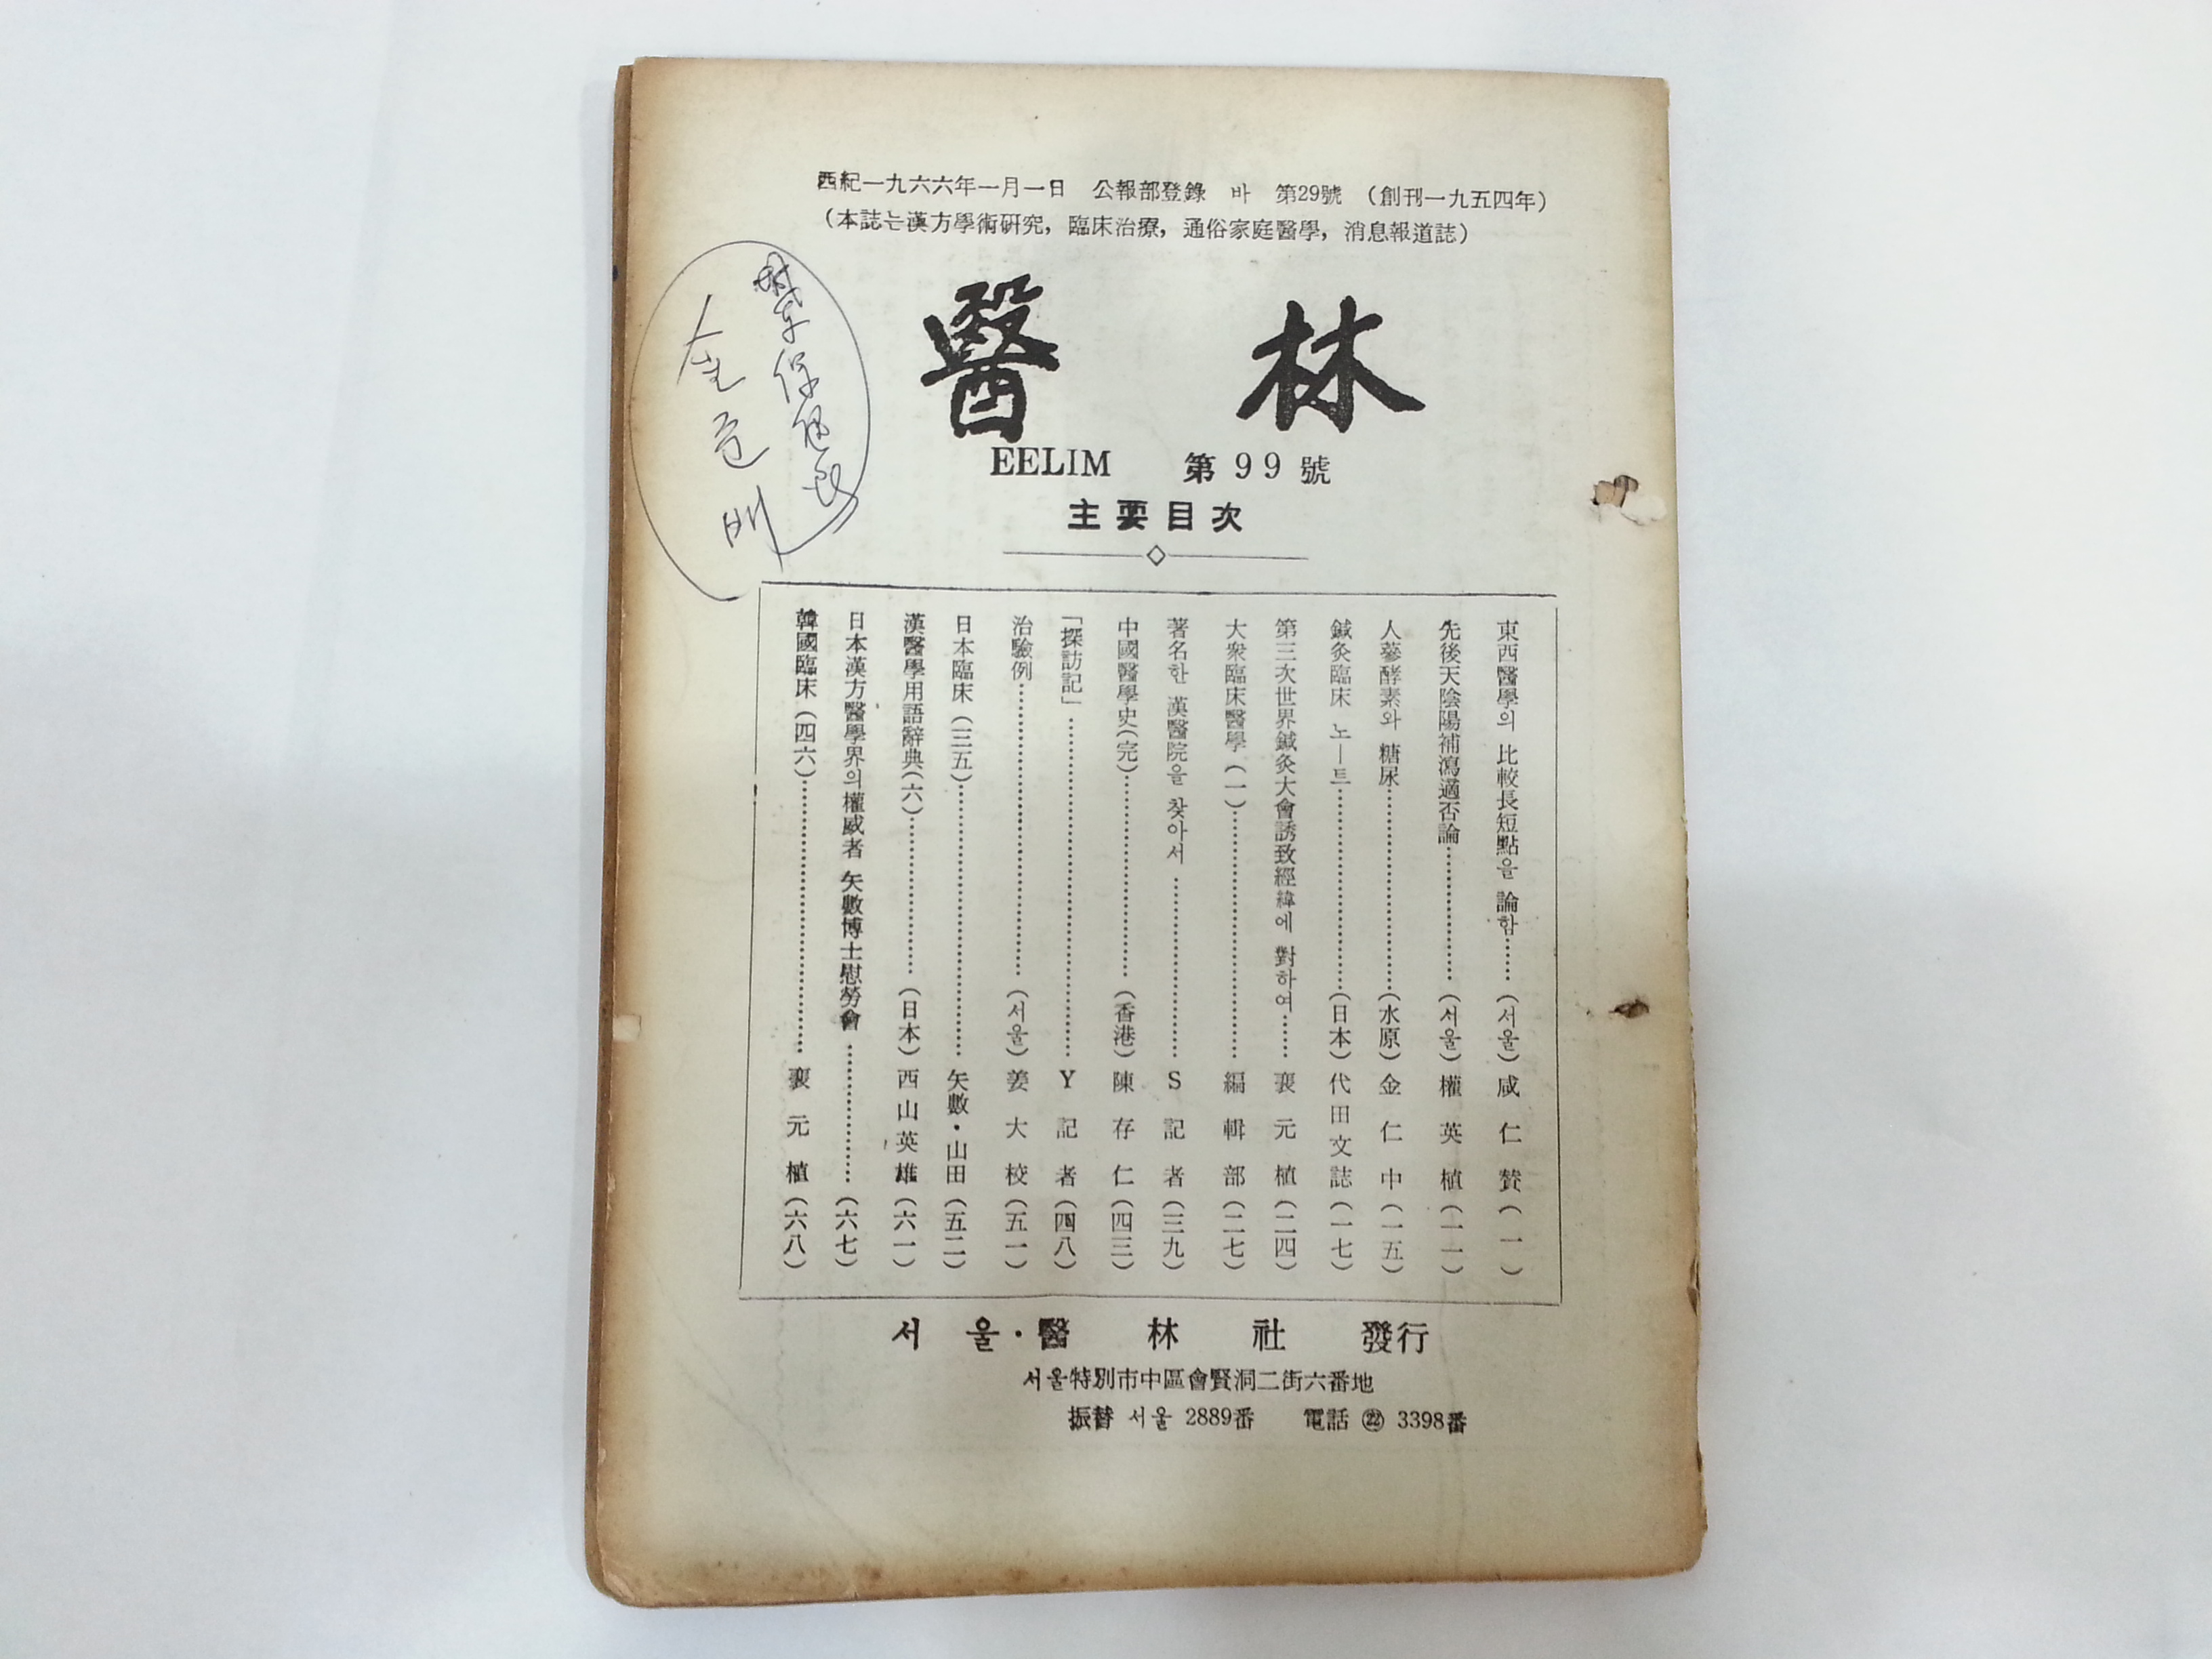 西紀一九六六年一月一日 公報部登錄 바 第29號 (創刊一九五四年)
(本誌는漢方學術硏究, 臨床治療, 通俗家庭醫學, 消息報道誌)
醫林
EELIM 第99號
主要目次
東西醫學의 比較長短點을 論함……(서울)咸仁贊(一)
先後天陰陽補瀉適否論……(서울)權英植(一一)
人蔘酵素와 糖尿……(水原)金仁中(一五)
鍼灸臨床 노―트……(日本)代田文誌(一七)
第三次世界鍼灸大會誘致經緯에 對하여……裵元植(二四)
大衆臨床醫學(一)……編輯部(二七)
著名한 漢醫院을 찾아서……S記者(三九)
中國醫學史(完)……(香港)陳存仁(四三)
「探訪記」……Y記者(四八)
治驗例……(서울)姜大校(五一)
日本臨床(三五)……矢數・山田(五二)
漢醫學用語辭典(六)……(日本)西山英雄(六一)
日本漢方醫學界의權威者 矢數博士慰勞會……(六七)
韓國臨床(四六)……裵元植(六八)
서울·醫林社 發行
서울特別市中區會賢洞二街六番地
振替 서울 2889番 電話 ㉒ 3398番